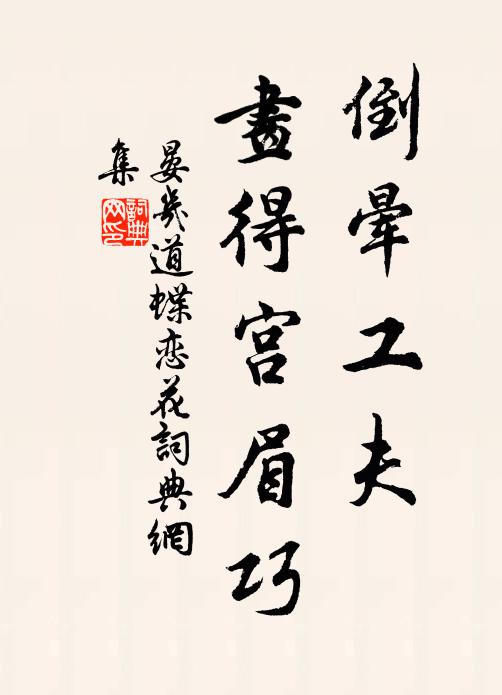 倒暈工夫
畫得宮眉巧
晏幾道蝶恋花詞典網
集
詞典網印